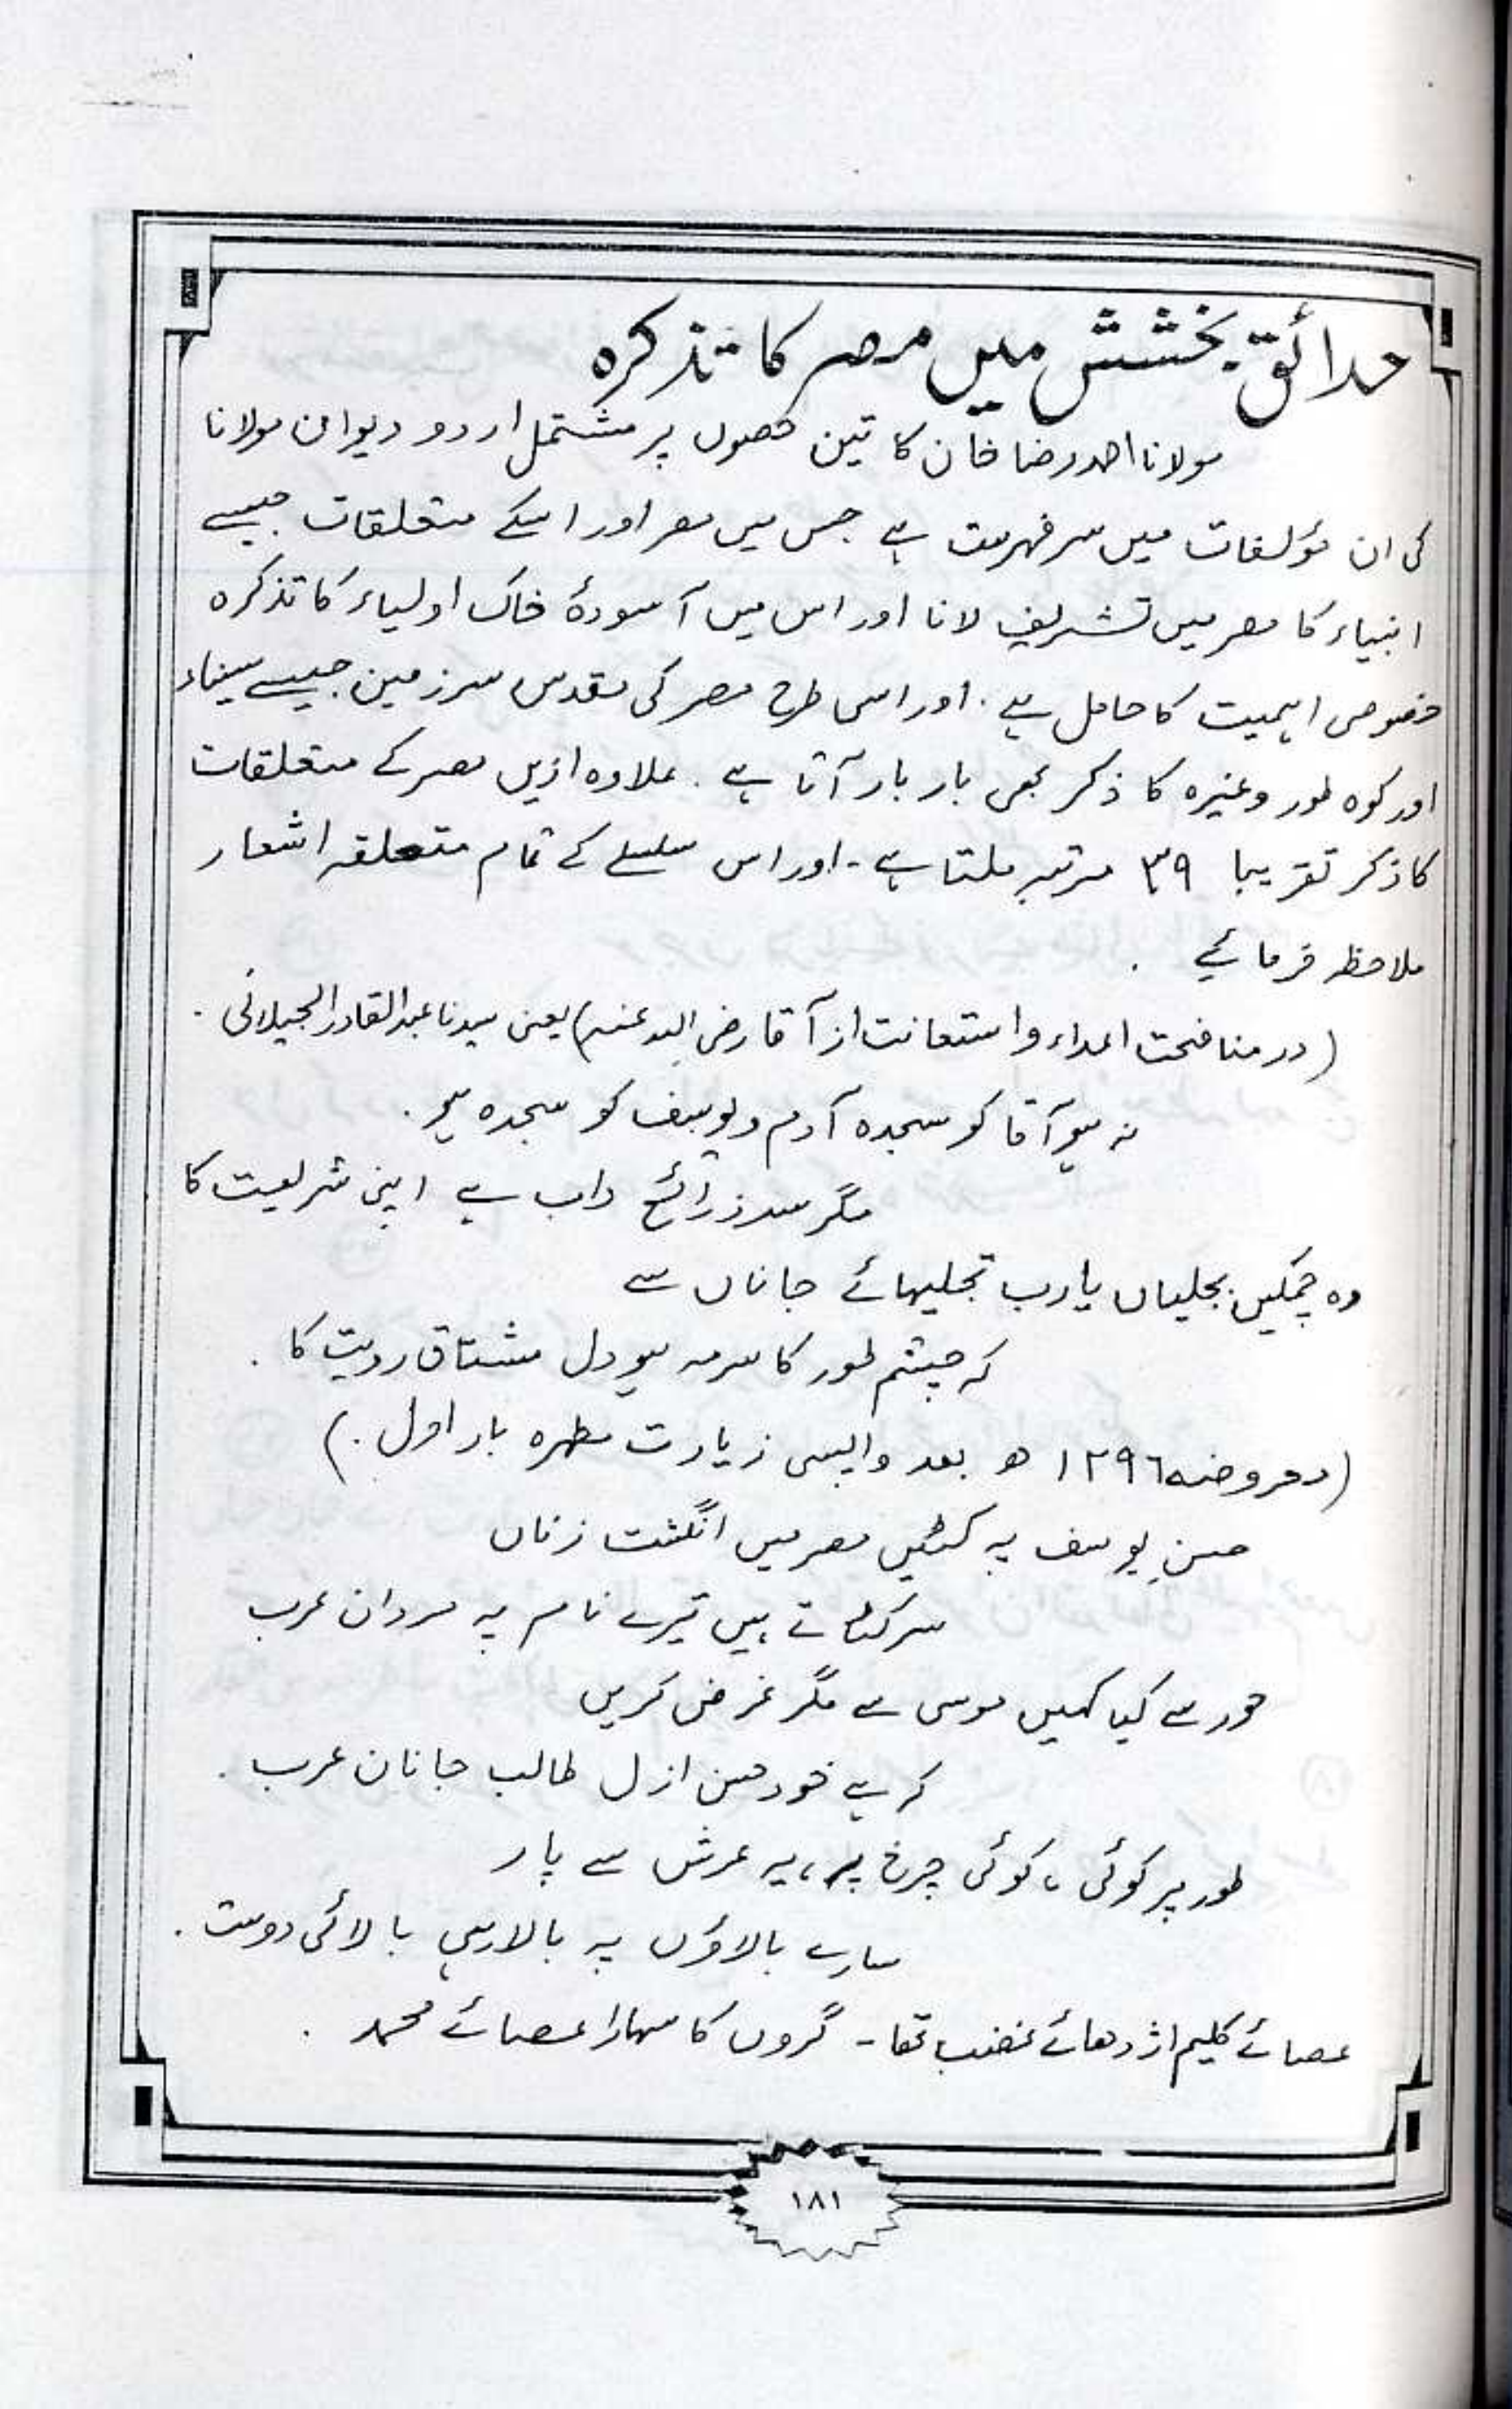 حدائق بخشش میں مصر کا تذکرہ
مولانا احمد رضا خان کا تین حصوں پر مشتمل اردو دیوان مولانا
کی ان مؤلفات میں سرفہرست ہے جس میں مصر اور اسکے متعلقات جیسے
انبیاء کا مصر میں تشریف لانا اور اس میں آسودۂ خاک اولیاء کا تذکرہ
خصوصی اہمیت کا حامل ہے. اور اسی طرح مصر کی مقدس سرزمین جیسے سیناء
اور کوہ طور وغیرہ کا ذکر بھی بار بار آتا ہے. علاوہ ازیں مصر کے متعلقات
کا ذکر تقریبا ۳۹ مرتبہ ملتا ہے - اور اس سلسلے کے تمام متعلقہ اشعار
ملاحظہ فرمائیے .
(در منافحت اعداء و استعانت از آقا رضی اللہ عنہ) یعنی سیدنا عبدالقادر الجیلانی .
نہ ہو آقا کو سجدہ آدم و یوسف کو سجدہ ہو .
مگر سد ذرائع داب ہے اپنی شریعت کا
وہ چمکیں بجلیاں یارب تجلیہائے جاناں سے
کہ چشم طور کا سرمہ ہو دل مشتاق رویت کا .
(معروضہ ۱۲۹٦ ھ بعد واپسی زیارت مطہرہ بار اول .)
حسنِ یوسف پہ کٹیں مصر میں انگشت زناں
سر کٹاتے ہیں تیرے نام پہ مردان عرب
حور سے کیا کہیں موسی سے مگر عرض کریں
کہ ہے خود حسن ازل طالب جانان عرب .
طور پر کوئی ، کوئی چرخ پر ، یہ عرش سے پار
سارے بالاؤں پہ بالا رہی بالائی دوست .
عصائے کلیم اژدھائے غضب تھا - گروں کا سہارا عصائے محمد .
۱۸۱